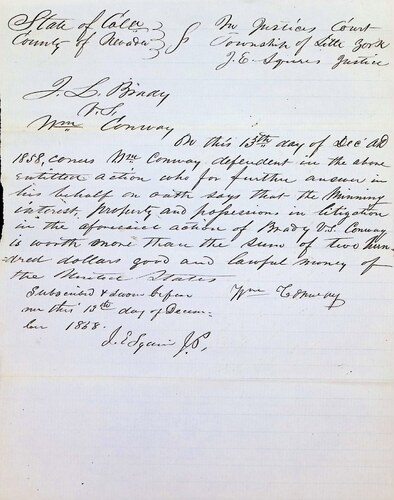 State of Cala } In Justices Court
County of Nevada } Township of Little York
J. E. Squires Justice
J. L. Brady
V.S.
Wm Conway
On this 13th day of Dec AD
1858, comes Wm Conway defendent in the above
entitled action who for further answer in
his behalf on oath says that the Minning
interest, property and possessions in litigation
in the aforesaid action of Brady V.S. Conway
is worth more than the sum of two hun-
dred dollars good and lawful money of
the United States
Subscribed & sworn before Wm Conway
me this 13th day of Decem-
ber 1858.
J. E Squire J.P.